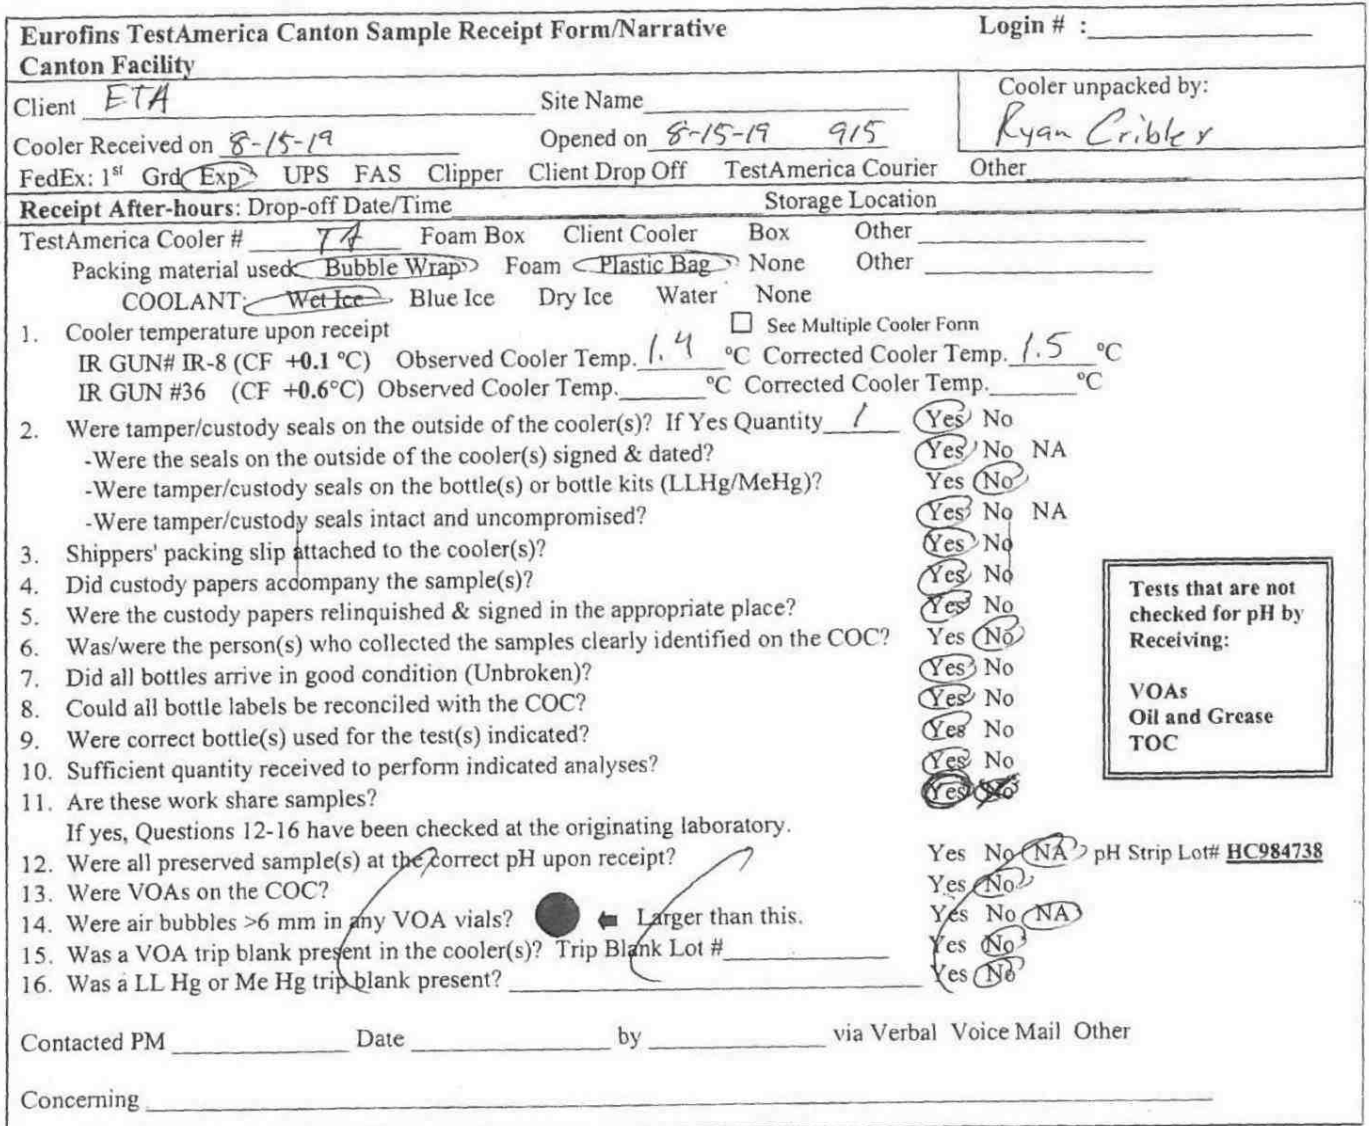 Eurofins TestAmerica Canton Sample Receipt Form/Narrative Login # :
Canton Facility
Client ETA Site Name Cooler unpacked by:
Cooler Received on 8-15-19 Opened on 8-15-19 915 Ryan Cribler
FedEx: 1st Grd Exp UPS FAS Clipper Client Drop Off TestAmerica Courier Other
Receipt After-hours: Drop-off Date/Time Storage Location
TestAmerica Cooler # TA Foam Box Client Cooler Box Other
Packing material used: Bubble Wrap Foam Plastic Bag None Other
COOLANT: Wet Ice Blue Ice Dry Ice Water None
1. Cooler temperature upon receipt ☐ See Multiple Cooler Form
IR GUN# IR-8 (CF +0.1 °C) Observed Cooler Temp. 1.4 °C Corrected Cooler Temp. 1.5 °C
IR GUN #36 (CF +0.6°C) Observed Cooler Temp. °C Corrected Cooler Temp. °C
2. Were tamper/custody seals on the outside of the cooler(s)? If Yes Quantity 1 Yes No
-Were the seals on the outside of the cooler(s) signed & dated? Yes No NA
-Were tamper/custody seals on the bottle(s) or bottle kits (LLHg/MeHg)? Yes No
-Were tamper/custody seals intact and uncompromised? Yes No NA
3. Shippers' packing slip attached to the cooler(s)? Yes No
4. Did custody papers accompany the sample(s)? Yes No
5. Were the custody papers relinquished & signed in the appropriate place? Yes No
6. Was/were the person(s) who collected the samples clearly identified on the COC? Yes No
7. Did all bottles arrive in good condition (Unbroken)? Yes No
8. Could all bottle labels be reconciled with the COC? Yes No
9. Were correct bottle(s) used for the test(s) indicated? Yes No
10. Sufficient quantity received to perform indicated analyses? Yes No
11. Are these work share samples? Yes No
If yes, Questions 12-16 have been checked at the originating laboratory.
Tests that are not
checked for pH by
Receiving:
VOAs
Oil and Grease
TOC
12. Were all preserved sample(s) at the correct pH upon receipt? Yes No NA pH Strip Lot# HC984738
13. Were VOAs on the COC? Yes No
14. Were air bubbles >6 mm in any VOA vials? Larger than this. Yes No NA
15. Was a VOA trip blank present in the cooler(s)? Trip Blank Lot # Yes No
16. Was a LL Hg or Me Hg trip blank present? Yes No
Contacted PM Date by via Verbal Voice Mail Other
Concerning